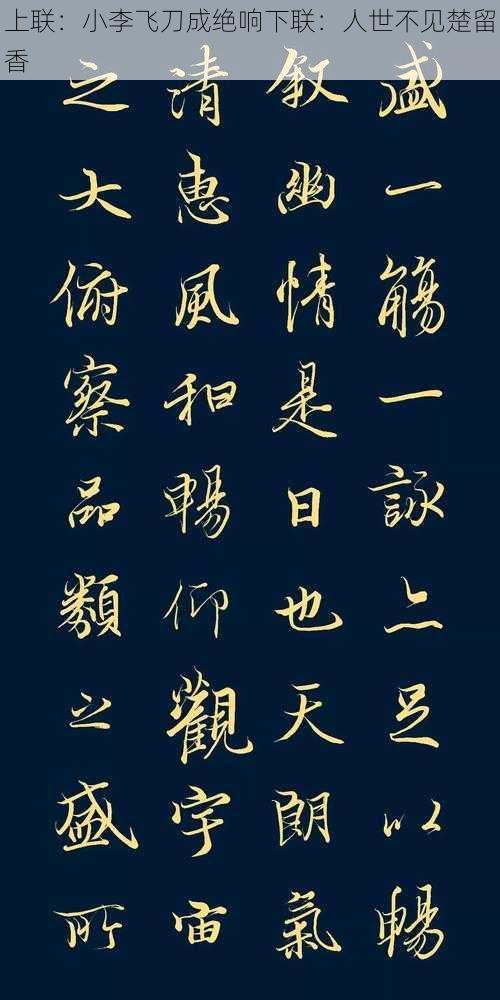 上联：小李飞刀成绝响下联：人世不见楚留
香
盛一觴一詠亦足以暢
叙幽情是日也天朗氣
清惠風和暢仰觀宇宙
之大俯察品類之盛所